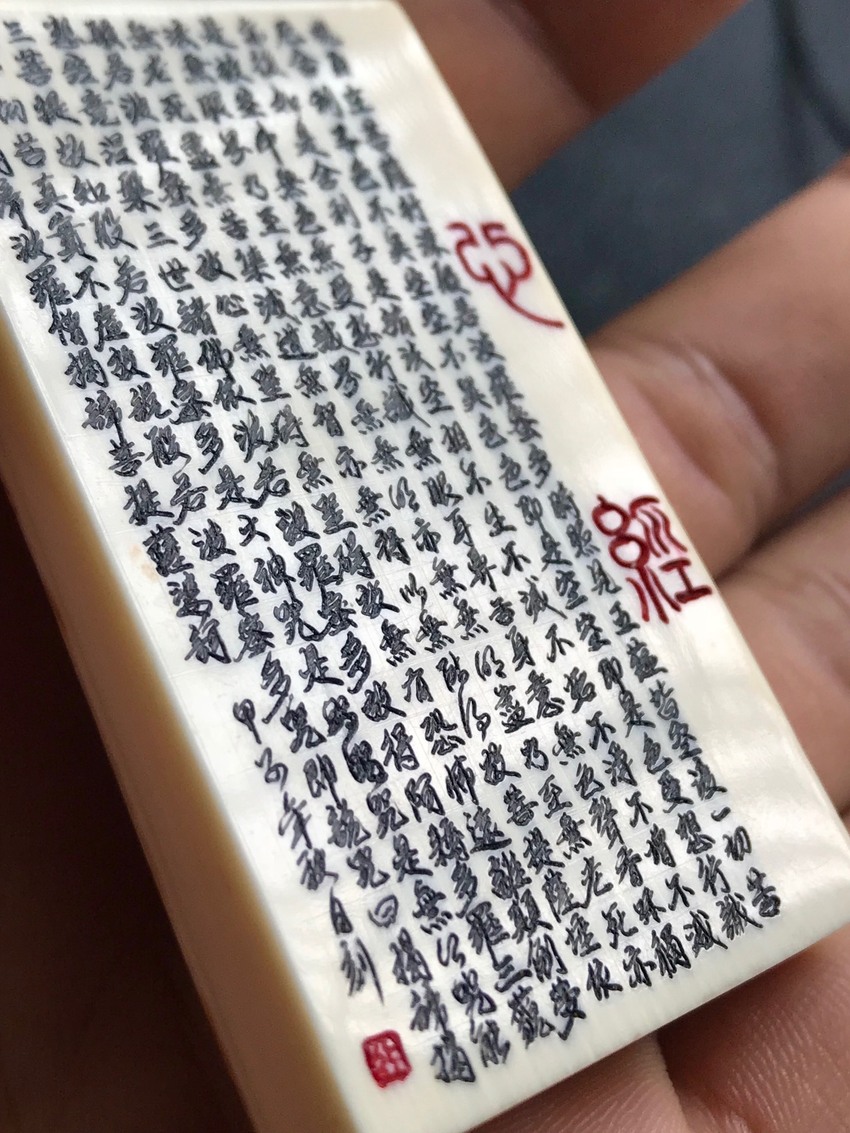 心經
自在菩薩行深般若波羅蜜多時照見五蘊皆空度一切苦
厄舍利子色不異空空不異色色即是空空即是色受想行識
亦復如是舍利子是諸法空相不生不滅不垢不淨不增不減
是故空中無色無受想行識無眼耳鼻舌身意無色聲香味
法無眼界乃至無意識界無無明亦無無明盡乃至無老死亦
無老死盡無苦集滅道無智亦無得以無所得故菩提薩埵依
般若波羅蜜多故心無罣礙無罣礙故無有恐怖遠離顛倒夢
想究竟涅槃三世諸佛依般若波羅蜜多故得阿耨多羅三藐
三菩提故知般若波羅蜜多是大神咒是大明咒是無上咒能
苦真實不虛故說般若波羅蜜多咒即說咒曰揭諦揭
諦波羅僧揭諦菩提薩婆訶
甲子年秋月刻